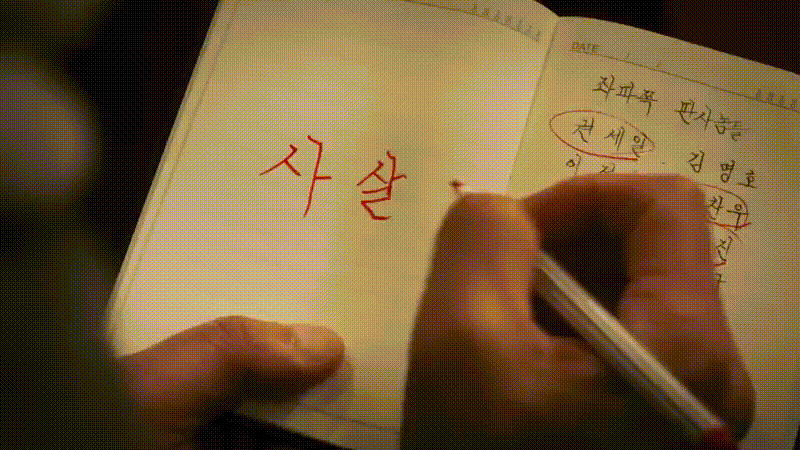 사 살
DATE / /
좌파쪽 판사놈들
전 세 일 . 김 명 호
이
찬 우
진